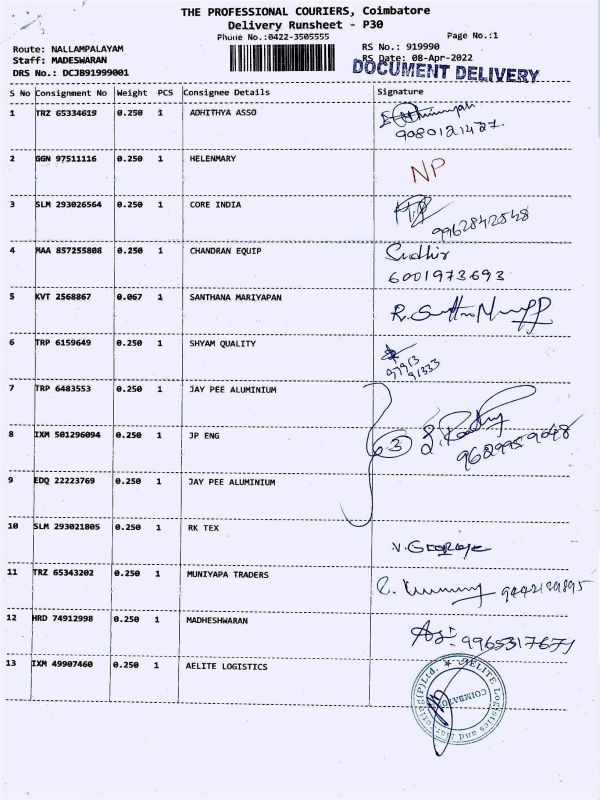 THE PROFESSIONAL COURIERS, Coimbatore
Delivery Runsheet - P30
Phone No.:0422-3505555
Page No.:1
Route: NALLAMPALAYAM
RS No.: 919990
Staff: MADESWARAN
RS Date: 08-Apr-2022
DRS No.: DCJB91999001
DOCUMENT DELIVERY
S No Consignment No Weight PCS Consignee Details Signature
1 TRZ 65334619 0.250 1 ADHITHYA ASSO
9080121427
2 GGN 97511116 0.250 1 HELENMARY NP
3 SLM 293026564 0.250 1 CORE INDIA
9962842548
4 MAA 857255808 0.250 1 CHANDRAN EQUIP Sudhir
6001973693
5 KVT 2568867 0.067 1 SANTHANA MARIYAPAN
6 TRP 6159649 0.250 1 SHYAM QUALITY
97913
91333
7 TRP 6483553 0.250 1 JAY PEE ALUMINIUM
8 IXM 501296094 0.250 1 JP ENG 3
9629959048
9 EDQ 22223769 0.250 1 JAY PEE ALUMINIUM
10 SLM 293021805 0.250 1 RK TEX
11 TRZ 65343202 0.250 1 MUNIYAPA TRADERS
12 HRD 74912998 0.250 1 MADHESHWARAN
9965317671
13 IXM 49907460 0.250 1 AELITE LOGISTICS